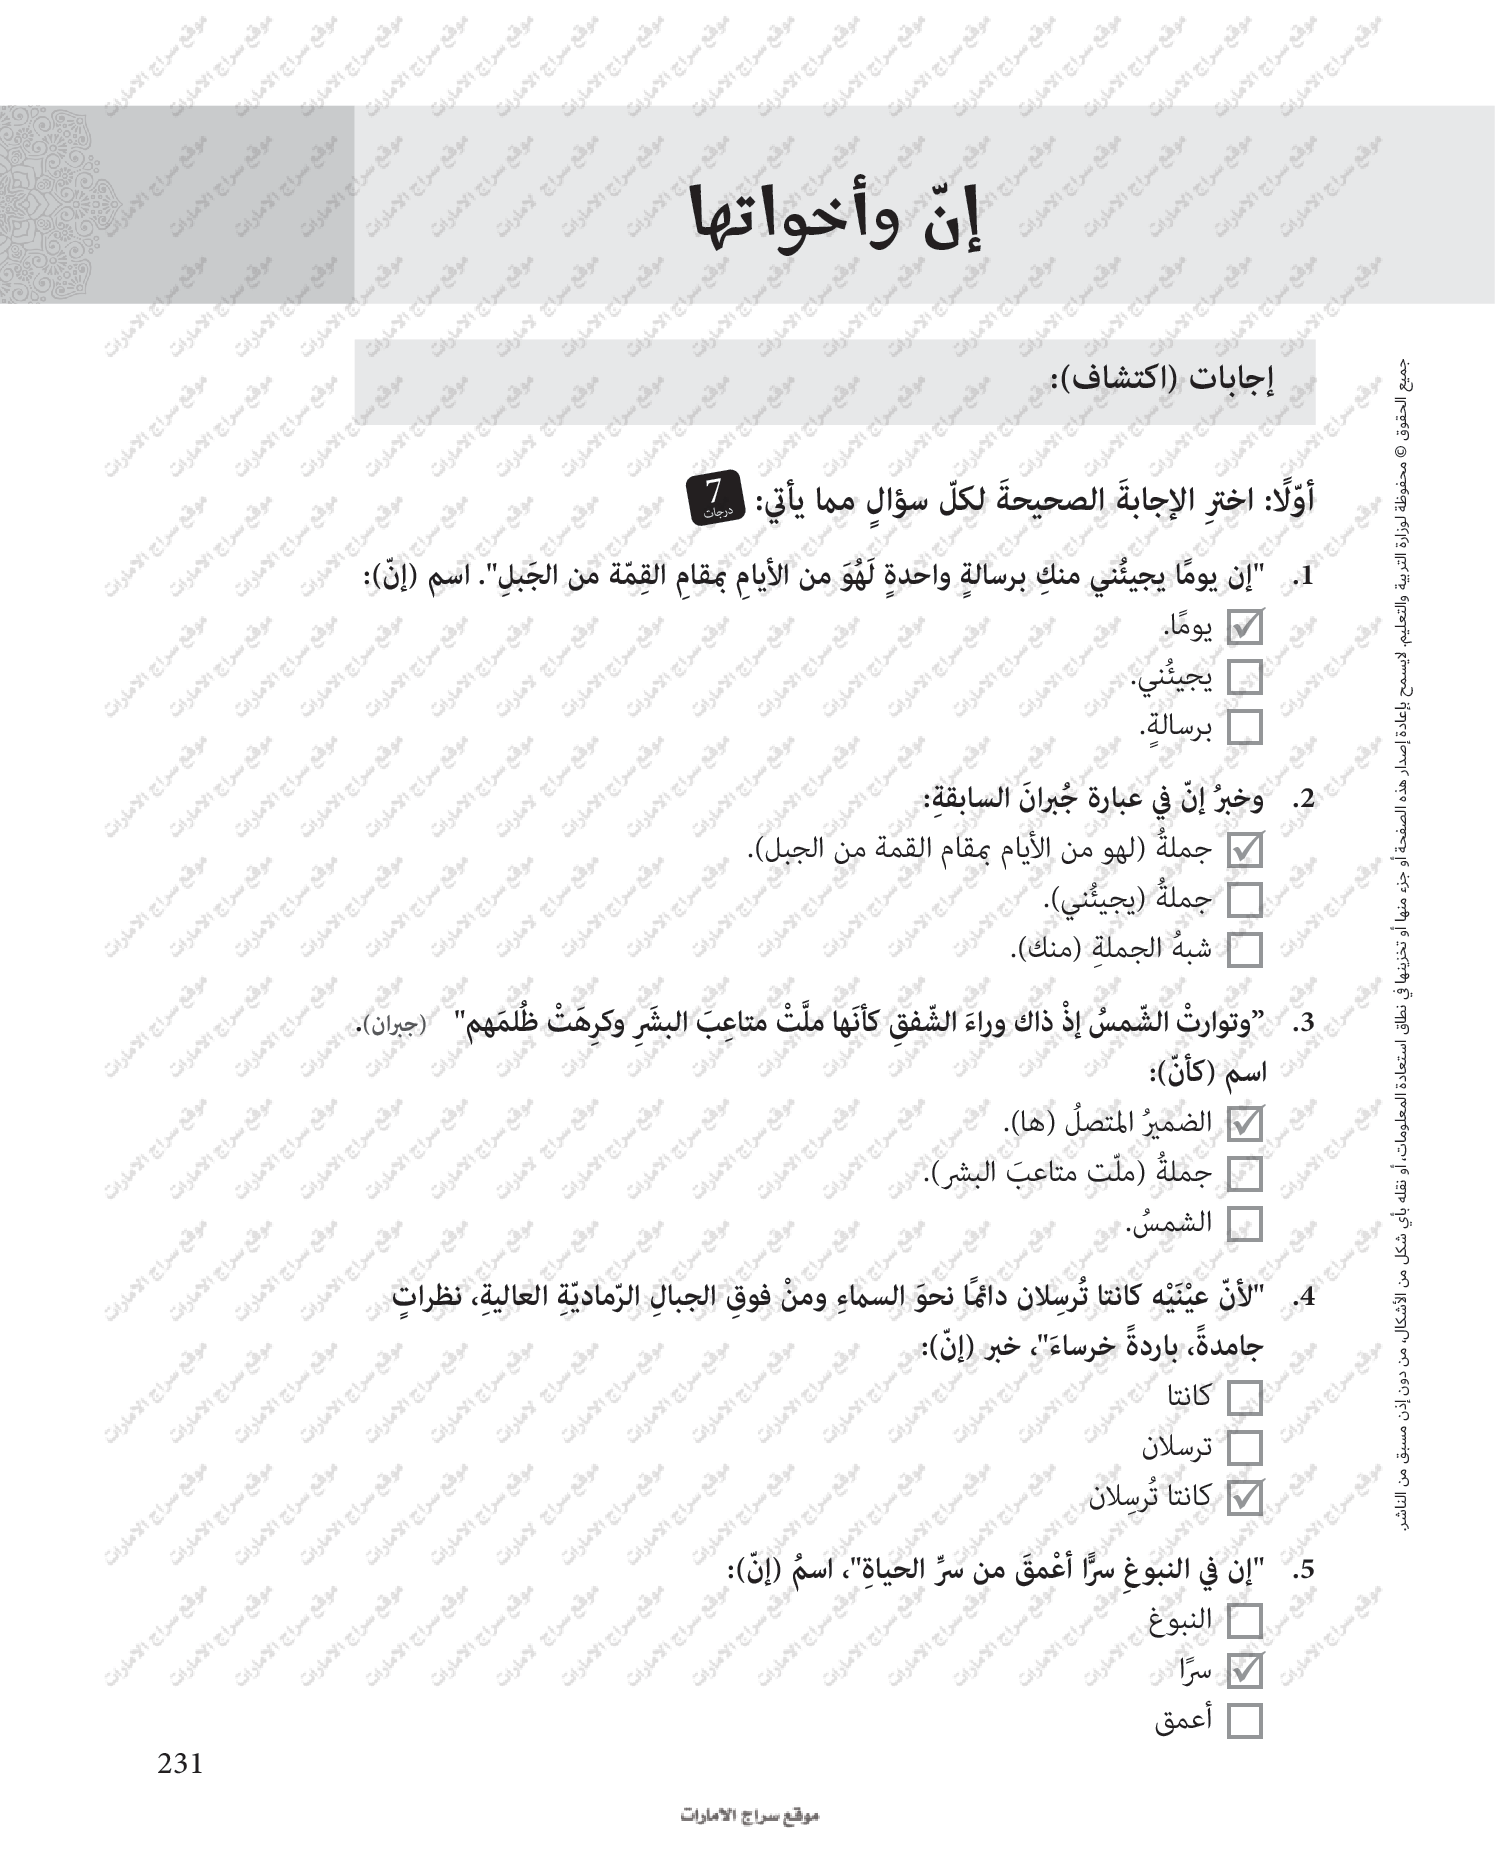 إنّ وأخواتها
إجابات (اكتشاف):
أوّلًا: اخترِ الإجابةَ الصحيحةَ لكلّ سؤالٍ مما يأتي: 7 درجات
1. "إن يومًا يجيئُني منكِ برسالةٍ واحدةٍ لَهُوَ من الأيامِ بمقامِ القِمّة من الجَبلِ". اسم (إنّ):
يومًا.
يجيئُني.
برسالةٍ.
2. وخبرُ إنّ في عبارة جُبرانَ السابقةِ:
جملةُ (لهو من الأيام بمقام القمة من الجبل).
جملةُ (يجيئُني).
شبهُ الجملةِ (منك).
3. ”وتوارتْ الشّمسُ إذْ ذاك وراءَ الشّفقِ كأنَها ملَّتْ متاعِبَ البشَرِ وكرِهَتْ ظُلمَهم" (جبران).
اسم (كأنّ):
الضميرُ المتصلُ (ها).
جملةُ (ملّت متاعبَ البشر).
الشمسُ.
4. "لأنّ عيْنَيْه كانتا تُرسِلان دائمًا نحوَ السماءِ ومنْ فوقِ الجبالِ الرّماديّةِ العاليةِ، نظراتٍ
جامدةً، باردةً خرساءَ"، خبر (إنّ):
كانتا
ترسلان
كانتا تُرسِلان
5. "إن في النبوغِ سرًّا أعْمقَ من سرِّ الحياةِ"، اسمُ (إنّ):
النبوغ
سرًا
أعمق
جميع الحقوق © محفوظة لوزارة التربية والتعليم. لايسمح بإعادة إصدار هذه الصفحة أو جزء منها أو تخزينها في نطاق استعادة المعلومات، أو نقله بأي شكل من الأشكال، من دون إذن مسبق من الناشر.
231
موقع سراج الامارات